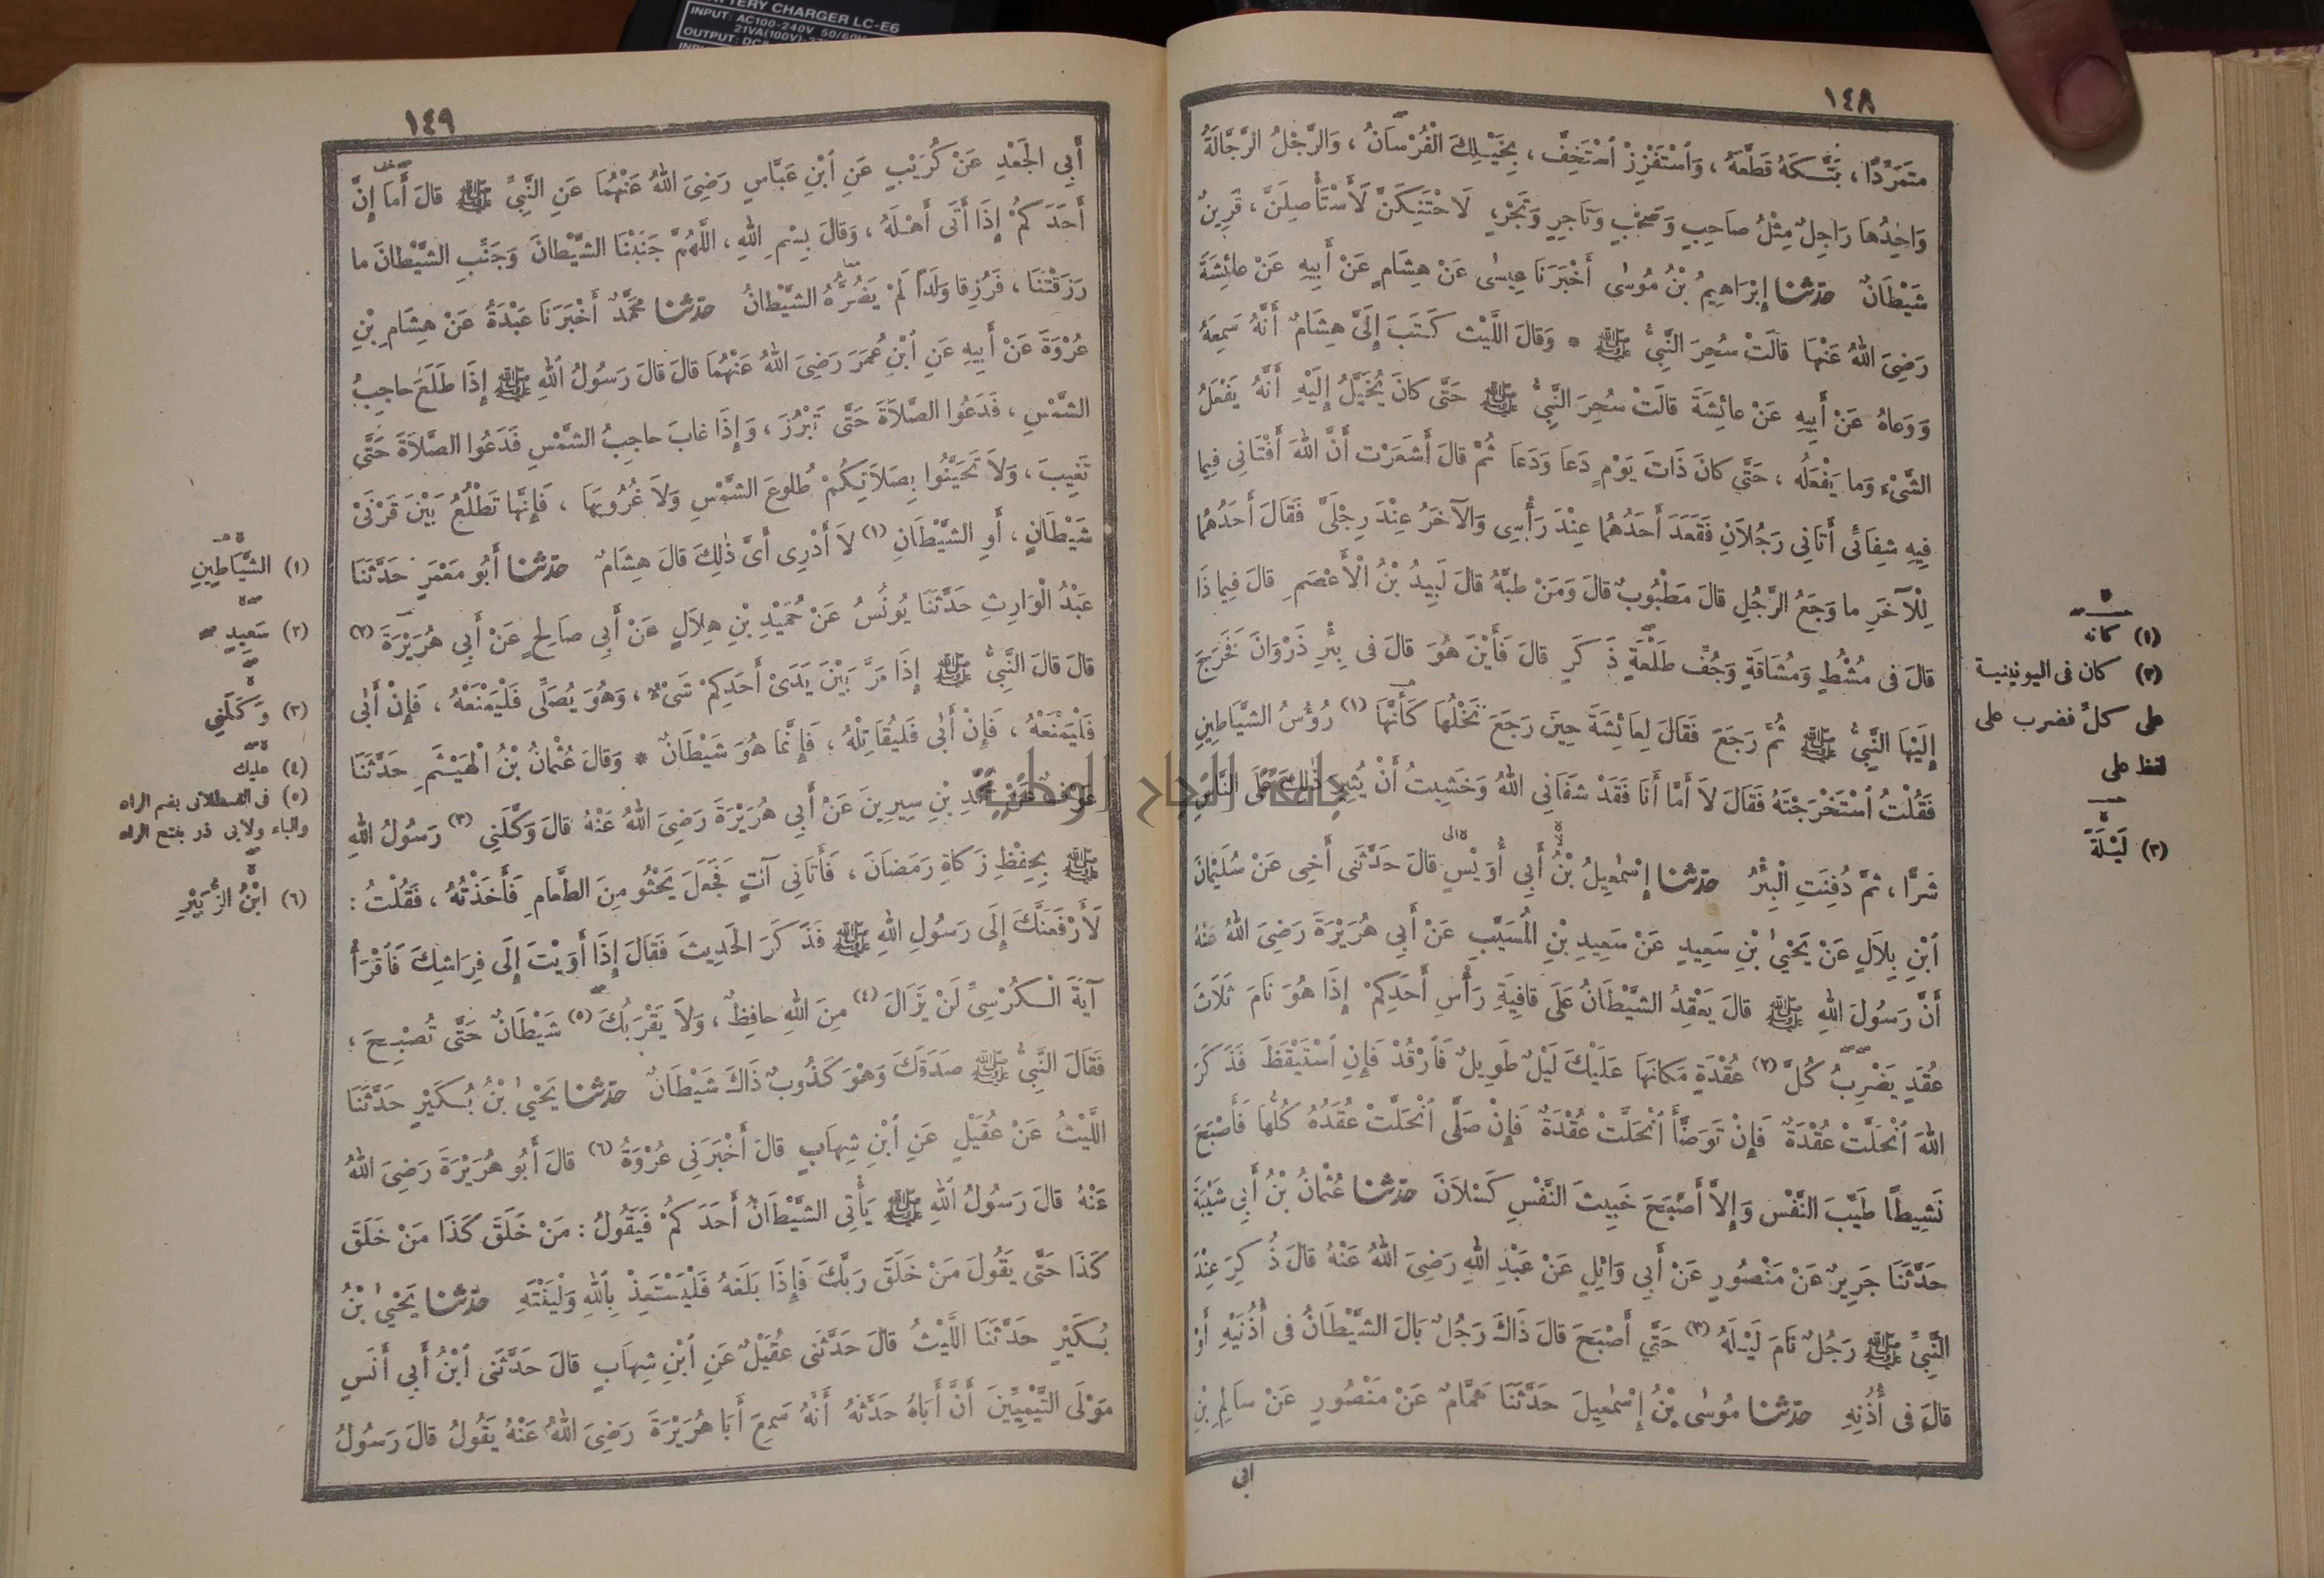 ١٤٨
متمَرِّدًا ، بَتَّكَهُ قَطَّعَهُ ، وَاسْتَفْزِزْ اسْتَخِفَّ ، بِخَيْلِكَ الْفُرْسَانُ ، وَالرَّجْلُ الرَّجَّالَةُ
وَاحِدُهَا رَاجِلٌ مِثْلُ صاحِبٍ وَصَحْبٍ وَتَاجِرٍ وَتَجْرٍ ، لَاحْتَنِكَنَّ لَأَسْتَأْصِلَنَّ ، قَرِينٌ
شَيْطَانٌ حدثنا إِبْرَاهِيمُ بْنُ مُوسٰى أَخْبَرَنَا عِيسٰى عَنْ هِشَامٍ عَنْ أَبِيهِ عَنْ عائِشَةَ
رَضِيَ اللهُ عَنْهَا قالَتْ سُحِرَ النَّبِيُّ ﷺ * وَقالَ اللَّيْث كَتَبَ إِلَىَّ هِشَامٌ أَنَّهُ سَمِعَهُ
وَوَعاهُ عَنْ أَبِيهِ عَنْ عائِشَةَ قالَتْ سُحِرَ النَّبِيُّ ﷺ حَتَّى كانَ يُخَيَّلُ إِلَيْهِ أَنَّهُ يَفْعَلُ
الشَّىْءَ وَما يَفْعَلُه ، حَتَّي كانَ ذَاتَ يَوْمٍ دَعَا وَدَعَا ثُمَّ قالَ أَشَعَرْت أَنَّ اللهَ أَفْتَانِي فِيما
فِيهِ شِفَائِي أَتَانِي رَجُلَانِ فَقَعَدَ أَحَدُهُما عِنْدَ رَأْسِي وَالآخَرُ عِنْدَ رِجْلَىَّ فَقَالَ أَحَدُهُما
لِلْآخَرِ ما وَجَعُ الرَّجُلِ قالَ مَطْبُوبٌ قالَ وَمَنْ طَبَّهُ قالَ لَبِيدُ بْنُ الْأَعْصَمِ قالَ فِيما ذَا
قالَ فى مُشْطٍ وَمُشَاقَةٍ وَجُفِّ طَلْعَةٍ ذَكَرٍ قالَ فَأَيْنَ هُوَ قالَ فى بِئْرِ ذَرْوَانَ فَخَرَجَ
إِلَيْهَا النَّبِيُّ ﷺ ثُمَّ رَجَعَ فَقَالَ لِعَائِشَةَ حِينَ رَجَعَ نَخْلُهَا كَأَنَّهَا (١) رُؤُسُ الشَّيَاطِينِ
فَقُلْتُ اسْتَخْرَجْتَهُ فَقَالَ لَا أَمَّا أَنَا فَقَدْ شَفَانِي اللهُ وَخَشِيتُ أَنْ يُثِيرَ ذٰلِكَ عَلَى النَّاسِ
شَرًّا ، ثمَّ دُفِنَتِ الْبِئْرُ حدثنا إِسْمٰعِيلُ بْنُ أَبِي أُوَيْسٍ قالَ حَدَّثَنِى أَخِى عَنْ سُلَيْمَانَ
ابْنِ بِلَالٍ عَنْ يَحْيىٰ بْنِ سَعِيدٍ عَنْ سَعِيدِ بْنِ الْمُسَيَّبِ عَنْ أَبِي هُرَيْرَةَ رَضِيَ اللهُ عَنْهُ
أَنَّ رَسُولَ اللهِ ﷺ قالَ يَعْقِدُ الشَّيْطَانُ عَلَى قافِيَةِ رَأْسِ أَحَدِكمْ إِذَا هُوَ نَامَ ثَلَاثَ
عُقَدٍ يَضْرِبُ كُلَّ (٢) عُقْدَةٍ مَكانَهَا عَلَيْكَ لَيْلٌ طَوِيلٌ فَارْقُدْ فَإِنِ اسْتَيْقَظَ فَذَكَرَ
اللهَ انْحَلَّتْ عُقْدَةٌ فَإِنْ تَوَضَّأَ انْحَلَّتْ عُقْدَةٌ فَإِنْ صَلَّى انْحَلَّتْ عُقَدُهُ كُلُّهَا فَأَصْبَحَ
نَشِيطًا طَيِّبَ النَّفْسِ وَإِلاَّ أَصْبَحَ خَبِيثَ النَّفْسِ كَسْلَانَ حدثنا عُثْمانُ بْنُ أَبِي شَيْبَةَ
حَدَّثَنَا جَرِيرٌ عَنْ مَنْصُورٍ عَنْ أَبِي وَائِلٍ عَنْ عَبْدِ اللهِ رَضِيَ اللهُ عَنْهُ قالَ ذُكِرَ عِنْدَ
النَّبِيِّ ﷺ رَجُلٌ نَامَ لَيْلَهُ (٣) حَتَّي أَصْبَحَ قالَ ذَاكَ رَجُلٌ بَالَ الشَّيْطَانُ فى أُذُنَيْهِ أَوْ
قالَ فى أُذُنِهِ حدثنا مُوسٰى بْنُ إِسْمٰعِيلَ حَدَّثَنَا هَمَّامٌ عَنْ مَنْصُورٍ عَنْ سَالِمِ بْنِ
ابى
(١) كانه
(٢) كان فى اليونينية
على كلّ فضرب على
لفظ على
(٣) لَيْلَةً
١٤٩
أَبِي الجَعْدِ عَنْ كُرَيْبٍ عَنِ ابْنِ عَبَّاسٍ رَضِيَ اللهُ عَنْهُمَا عَنِ النَّبِيِّ ﷺ قالَ أَما إِنَّ
أَحَدَكُمْ إِذَا أَتَى أَهْلَهُ ، وَقالَ بِسْمِ اللهِ ، اللَّهُمَّ جَنِّبْنَا الشَّيْطَانَ وَجَنِّبِ الشَّيْطَانَ ما
رَزَقْتَنَا ، فَرُزِقا وَلَدًا لَمْ يَضُرَّهُ الشَّيْطَانُ حدثنا مُحَمَّدٌ أَخْبَرَنَا عَبْدَةُ عَنْ هِشَامِ بْنِ
عُرْوَةَ عَنْ أَبِيهِ عَنِ ابْنِ عُمَرَ رَضِيَ اللهُ عَنْهُمَا قالَ قالَ رَسُولُ اللهِ ﷺ إِذَا طَلَعَ حاجِبُ
الشَّمْسِ ، فَدَعُوا الصَّلَاةَ حَتَّى تَبْرُزَ ، وَإِذَا غابَ حاجِبُ الشَّمْسِ فَدَعُوا الصَّلَاةَ حَتَّى
تَغِيبَ ، وَلَا تَحَيَّنُوا بِصَلَاتِكُمْ طُلوعَ الشَّمْسِ وَلَا غُرُوبَهَا ، فَإِنَّهَا تَطْلُعُ بَيْنَ قَرْنَىْ
شَيْطَانٍ ، أَوِ الشَّيْطَانِ (١) لَا أَدْرِى أَىَّ ذٰلِكَ قالَ هِشَامٌ حدثنا أَبُو مَعْمَرٍ حَدَّثَنَا
عَبْدُ الْوَارِثِ حَدَّثَنَا يُونُسُ عَنْ حُمَيْدِ بْنِ هِلَالٍ عَنْ أَبِي صَالِحٍ عَنْ أَبِي هُرَيْرَةَ (٢)
قالَ قالَ النَّبِيُّ ﷺ إِذَا مَرَّ بَيْنَ يَدَىْ أَحَدِكمْ شَىْءٌ ، وَهُوَ يُصَلِّى فَلْيَمْنَعْهُ ، فَإِنْ أَبٰى
فَلْيَمْنَعْهُ ، فَإِنْ أَبٰى فَليُقَاتِلْهُ ، فَإِنَّمَا هُوَ شَيْطَانٌ * وَقالَ عُثْمانُ بْنُ الْهَيْثَمِ حَدَّثَنَا
عَوْفٌ عَنْ مُحَمَّدِ بْنِ سِيرِينَ عَنْ أَبِي هُرَيْرَةَ رَضِيَ اللهُ عَنْهُ قالَ وَكَّلَنِي (٣) رَسُولُ اللهِ
ﷺ بِحِفْظِ زَكاةِ رَمَضَانَ ، فَأَتَانِي آتٍ فَجَعَلَ يَحْثُو مِنَ الطَّعَامِ فَأَخَذْتُهُ ، فَقُلْتُ :
لَأَرْفَعَنَّكَ إِلَى رَسُولِ اللهِ ﷺ فَذَكَرَ الحَدِيثَ فَقَالَ إِذَا أَوَيْتَ إِلَى فِرَاشِكَ فَاقْرَأْ
آيَةَ الْكُرْسِيِّ لَنْ يَزَالَ (٤) مِنَ اللهِ حافِظٌ ، وَلَا يَقْرَبُكَ (٥) شَيْطَانٌ حَتَّى تُصْبِحَ ،
فَقَالَ النَّبِيُّ ﷺ صَدَقَكَ وَهْوَ كَذُوبٌ ذَاكَ شَيْطَانٌ حدثنا يَحْيىٰ بْنُ بُكَيْرٍ حَدَّثَنَا
اللَّيْثُ عَنْ عُقَيْلٍ عَنِ ابْنِ شِهَابٍ قالَ أَخْبَرَنِي عُرْوَةُ (٦) قالَ أَبُو هُرَيْرَةَ رَضِيَ اللهُ
عَنْهُ قالَ رَسُولُ اللهِ ﷺ يَأْتِي الشَّيْطَانُ أَحَدَكُمْ فَيَقُولُ : مَنْ خَلَقَ كَذَا مَنْ خَلَقَ
كَذَا حَتَّى يَقُولَ مَنْ خَلَقَ رَبَّكَ فَإِذَا بَلَغَهُ فَلْيَسْتَعِذْ بِاللهِ وَلْيَنْتَهِ حدثنا يَحْيىٰ بْنُ
بُكَيْرٍ حَدَّثَنَا اللَّيْثُ قالَ حَدَّثَنِى عُقَيْلٌ عَنِ ابْنِ شِهَابٍ قالَ حَدَّثَنِى ابْنُ أَبِي أَنَسٍ
مَوْلَى التَّيْمِيِّينَ أَنَّ أَبَاهُ حَدَّثَهُ أَنَّهُ سَمِعَ أَبَا هُرَيْرَةَ رَضِيَ اللهُ عَنْهُ يَقُولُ قالَ رَسُولُ
(١) الشَّيَاطِينِ
(٢) سَعِيدٍ
(٣) وَكَلَنِي
(٤) عليك
(٥) فى القسطلانى بضم الراء
والباء ولابى ذر بفتح الراء
(٦) ابْنُ الزُّبَيْرِ
جامعة النجاح الوطنية
BATTERY CHARGER LC-E6
INPUT: AC100-240V 50/60H
21VA(100V)-
OUTPUT: DC